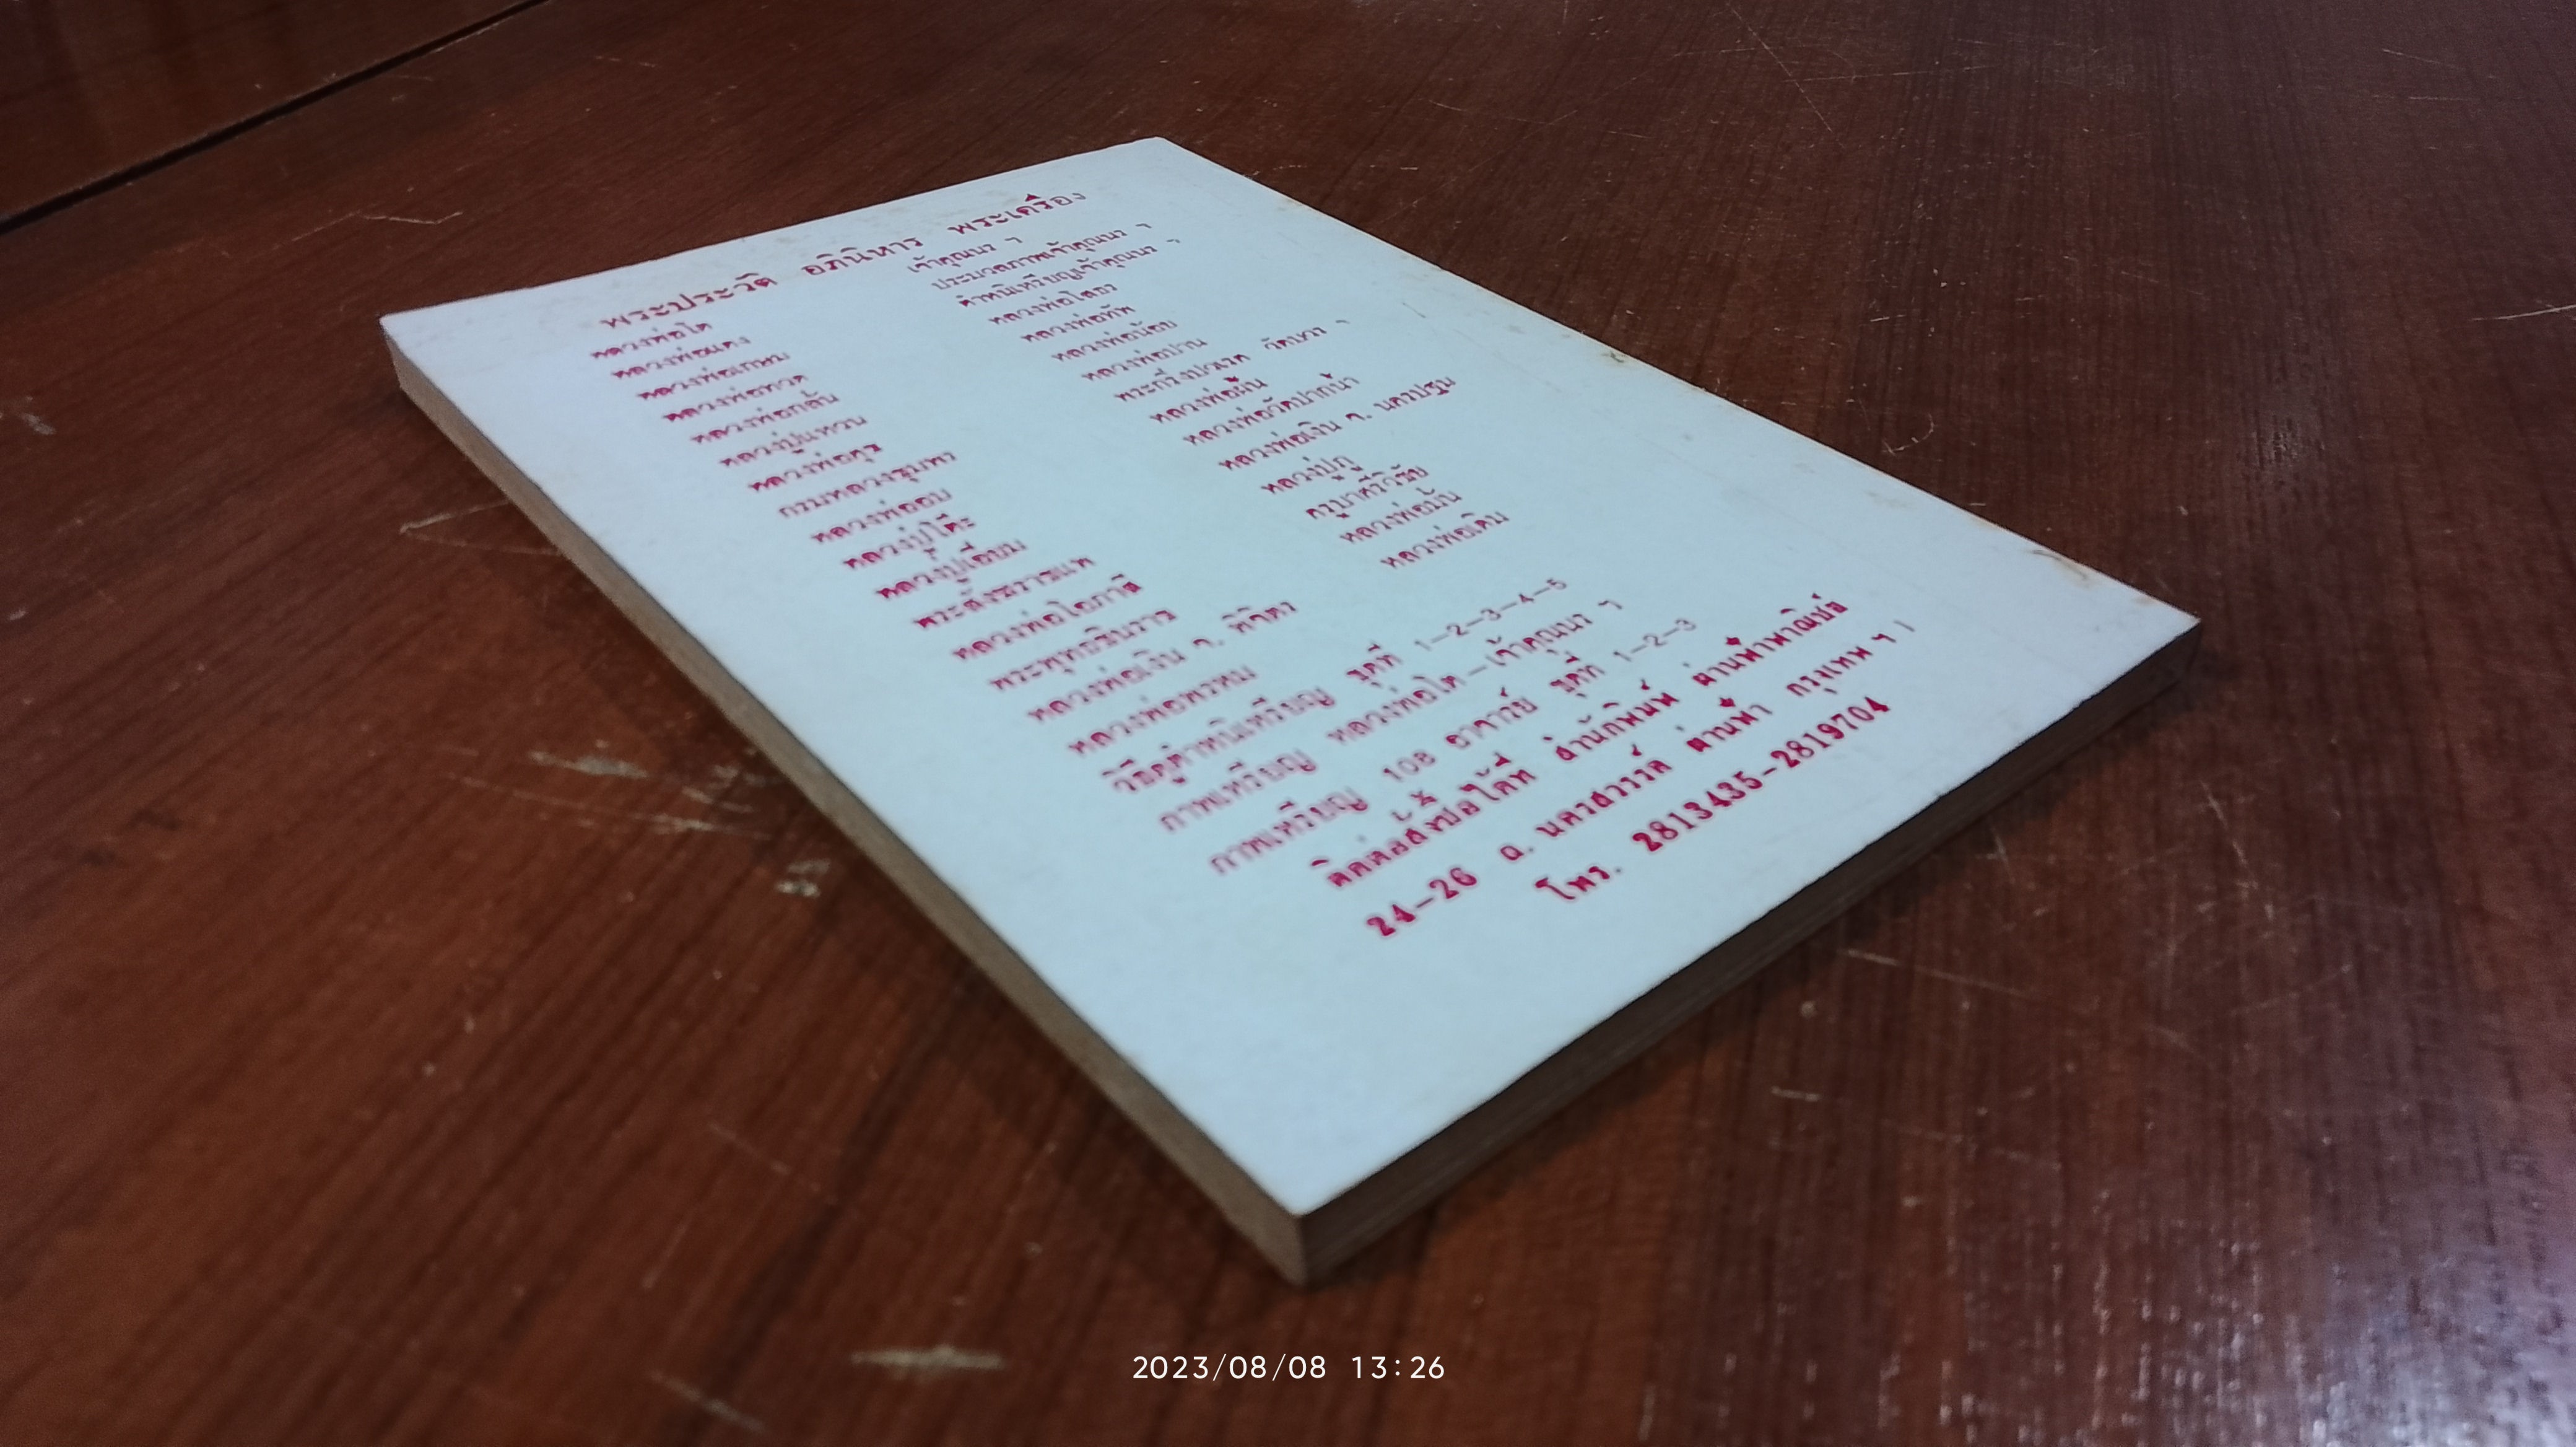 พระประวัติ อภินิหาร พระเครื่อง
หลวงพ่อโต
หลวงพ่อแดง
หลวงพ่อเกษม
หลวงพ่อทวด
หลวงพ่อกลั่น
หลวงปู่แหวน
หลวงพ่อศุข
กรมหลวงชุมพร
หลวงพ่ออบ
หลวงปู่โต๊ะ
หลวงปู่เอี่ยม
พระสังฆราชแพ
หลวงพ่อโอภาสี
พระพุทธชินราช
หลวงพ่อเงิน จ. พิจิตร
หลวงพ่อพรหม
เจ้าคุณนร ฯ
ประมวลภาพเจ้าคุณนร ฯ
ตำหนิเหรียญเจ้าคุณนร ฯ
หลวงพ่อโสธร
หลวงพ่อทัพ
หลวงพ่อน้อย
หลวงพ่อปาน
พระกริ่งปวเรศ วัดบวร ฯ
หลวงพ่อฝั้น
หลวงพ่อวัดปากน้ำ
หลวงพ่อเงิน จ. นครปฐม
หลวงปู่ภู
ครูบาศรีวิชัย
หลวงพ่อมั่น
หลวงพ่อเดิม
วิธีดูตำหนิเหรียญ ชุดที่ 1—2—3—4—5
ภาพเหรียญ หลวงพ่อโต—เจ้าคุณนร ฯ
ภาพเหรียญ 108 อาจารย์ ชุดที่ 1—2—3
ติดต่อสั่งซื้อได้ที่ สำนักพิมพ์ ผ่านฟ้าพาณิชย์
24—26 ถ. นครสวรรค์ ผ่านฟ้า กรุงเทพ ฯ 1
โทร. 2813435-2819704
2023/08/08 13:26